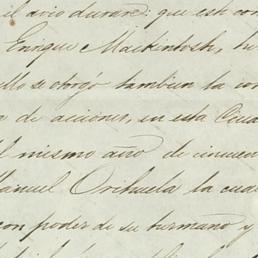 que est con
Enrique Mackintosh, he
se otorgó tambien la co
de acciones, en esta Ciua
l mismo año de cincuen
Manuel Orihuela la cua
con poder de su hermano y